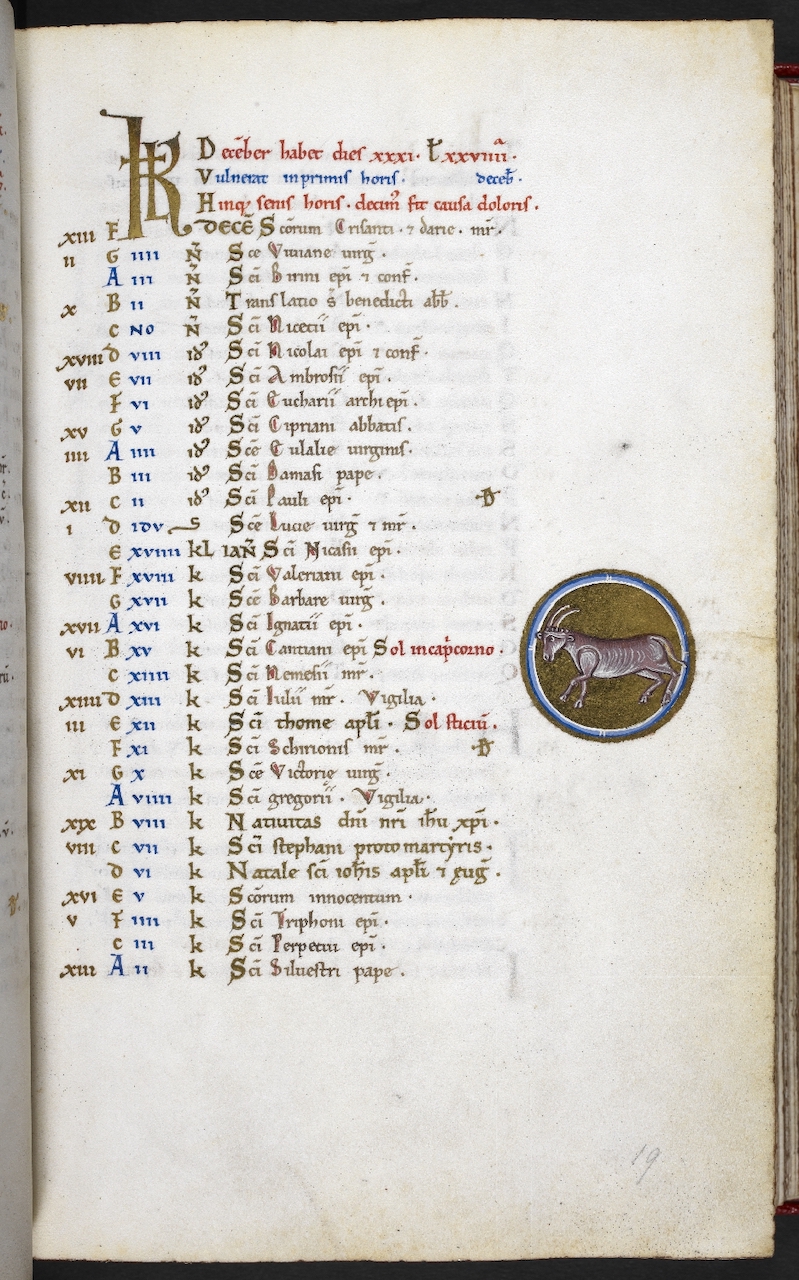 KL Decēber habet dies xxxi. L xxviiii.
Vulnerat inprimis horis. decēb.
Hinq; senis horis. decim fit causa doloris.
xiii F DECĒ Scōrum Crisanti. ⁊ darie. mr̄.
ii G iiii N̄ Sce Viuiane uirḡ.
A iii N̄ Sc̄i Birini ep̄i ⁊ conf̄.
x B ii N̄ Translatio s̄ benedicti abb̄.
C NO N̄ Sc̄i Nicetii ep̄i.
xviii D viii id Sc̄i Nicolai ep̄i ⁊ conf̄.
vii E vii id Sc̄i Ambrosii ep̄i.
F vi id Sc̄i Eucharii archiep̄i.
xv G v id Sc̄i Cipriani abbatis.
iiii A iiii id Scē Eulalie uirginis.
B iii id Sc̄i Damasi pape.
xii C ii id Sc̄i Pauli ep̄i. D
i D idv s Scē Lucie uirḡ ⁊ mr̄.
E xviiii kL IAN̄ Sc̄i Nicasii ep̄i.
viiii F xviii k Sc̄i Valeriani ep̄i.
G xvii k Scē Barbare uirḡ.
xvii A xvi k Sc̄i Ignatii ep̄i.
vi B xv k Sc̄i Cantiani ep̄i Sol incap̄corno.
C xiiii k Sc̄i Nemesii mr̄.
xiiii D xiii k Sc̄i Iulii mr̄. Vigilia.
iii E xii k Sc̄i thome apl̄i. Sol sticiū.
F xi k Sc̄i Schirionis mr̄. D
xi G x k Scē Victorię uirḡ.
A viiii k Sc̄i gregorii. Vigilia.
xix B viii k Natiuitas dn̄i nr̄i ih̄u xp̄i.
viii C vii k Sc̄i stephani protomartyris.
D vi k Natale sc̄i ioh̄is apl̄i ⁊ euḡ.
xvi E v k Scōrum innocentum.
v F iiii k Sc̄i Triphoni ep̄i.
C iii k Sc̄i Perpetui ep̄i.
xiii A ii k Sc̄i Siluestri pape.
19